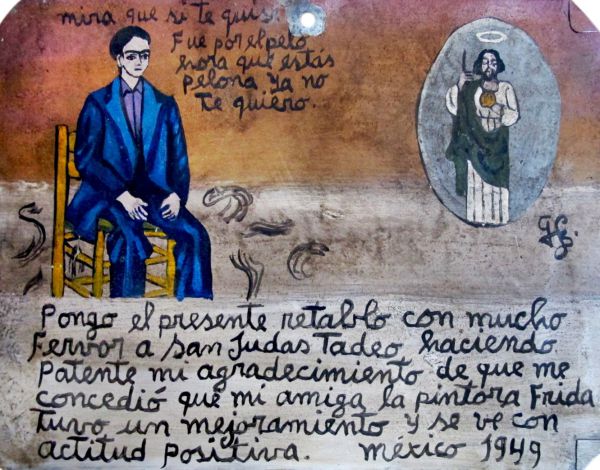 mira que si te quis
Fue por el pelo
hora que estás
pelona ya no
te quiero.
Pongo el presente retablo con mucho
Fervor a San Judas Tadeo haciendo
Patente mi agradecimiento de que me
concedió que mi amiga la pintora Frida
tuvo un mejoramiento y se ve con
actitud positiva. México 1949